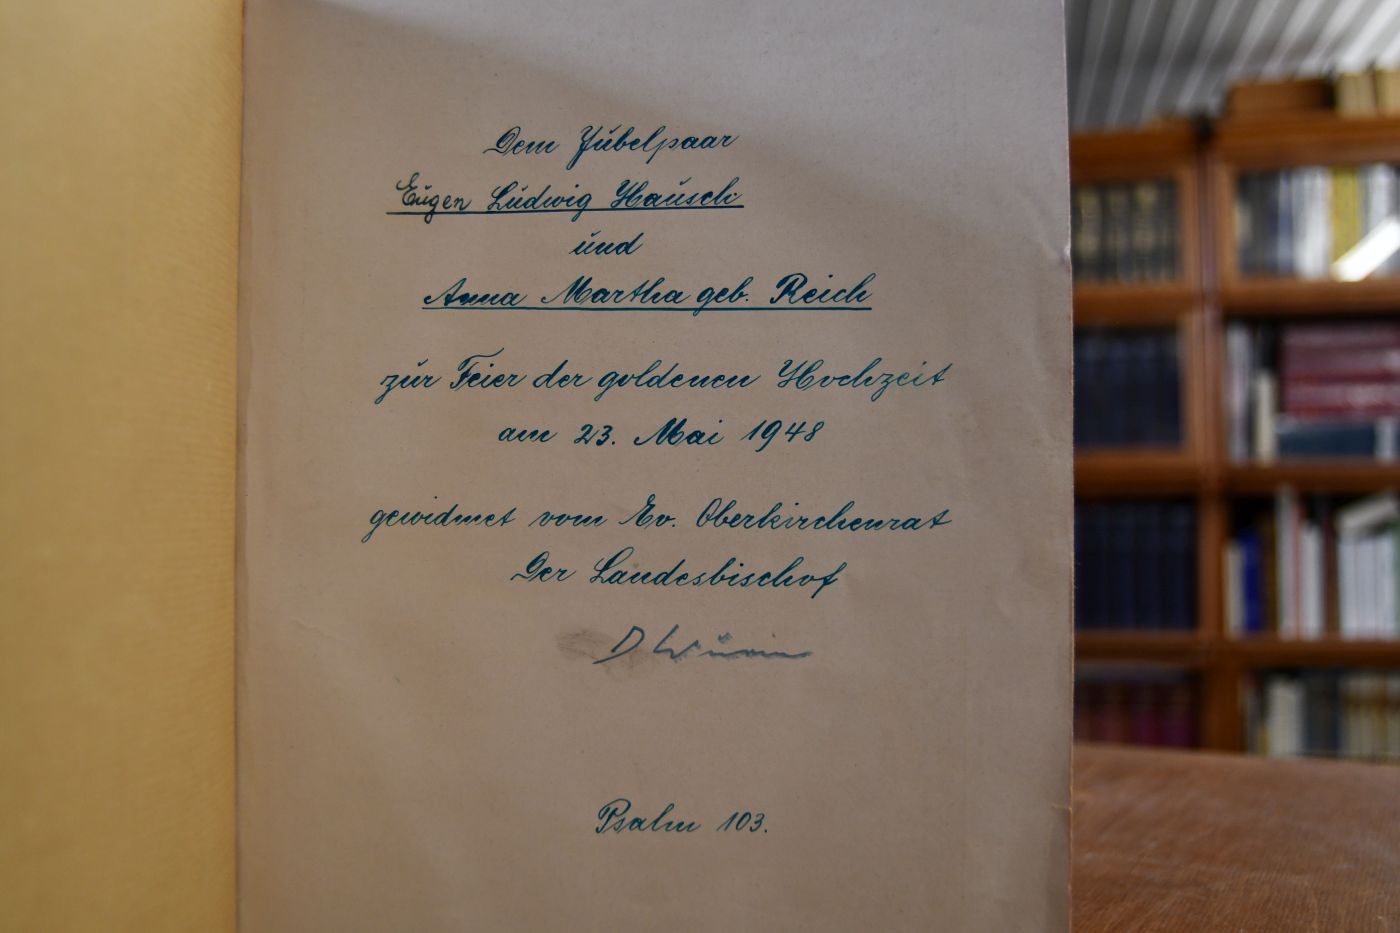 Dem Jubelpaar
Eugen Ludwig Hausch
und
Anna Martha geb. Reich
zur Feier der goldenen Hochzeit
am 23. Mai 1948
gewidmet vom Ev. Oberkirchenrat
Der Landesbischof
D Wurm
Psalm 103.